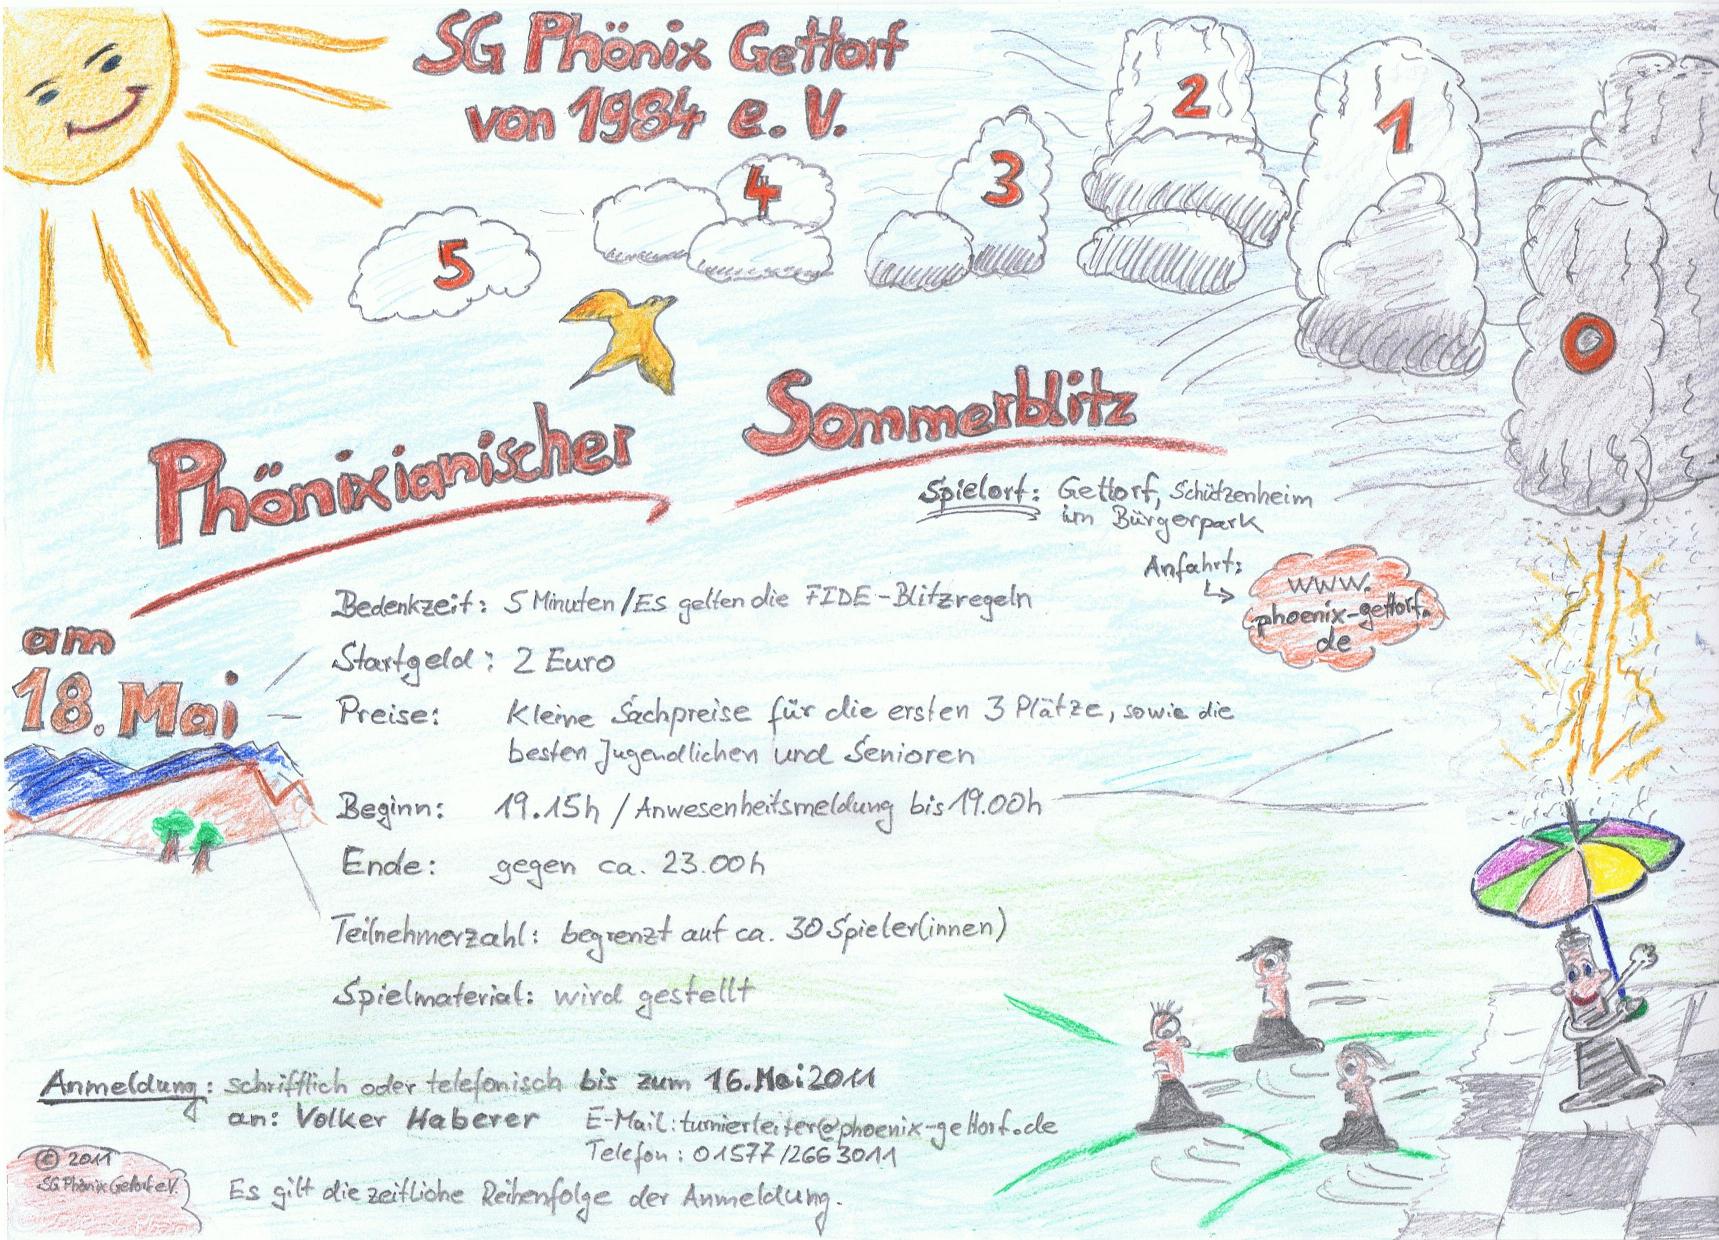 SG Phönix Gettorf
von 1984 e. V.
5
4
3
2
1
0
Phönixianischer Sommerblitz
Spielort: Gettorf, Schützenheim
im Bürgerpark
Anfahrt:
www.
phoenix-gettorf.
de
am
18. Mai
Bedenkzeit: 5 Minuten / Es gelten die FIDE-Blitzregeln
Startgeld: 2 Euro
Preise: Kleine Sachpreise für die ersten 3 Plätze, sowie die
besten Jugendlichen und Senioren
Beginn: 19.15h / Anwesenheitsmeldung bis 19.00h
Ende: gegen ca. 23.00h
Teilnehmerzahl: begrenzt auf ca. 30 Spieler(innen)
Spielmaterial: wird gestellt
Anmeldung: schriftlich oder telefonisch bis zum 16. Mai 2011
an: Volker Haberer E-Mail: turnierleiter@phoenix-gettorf.de
Telefon: 01577/2663011
Es gilt die zeitliche Reihenfolge der Anmeldung.
© 2011
SG Phönix Gettorf e.V.